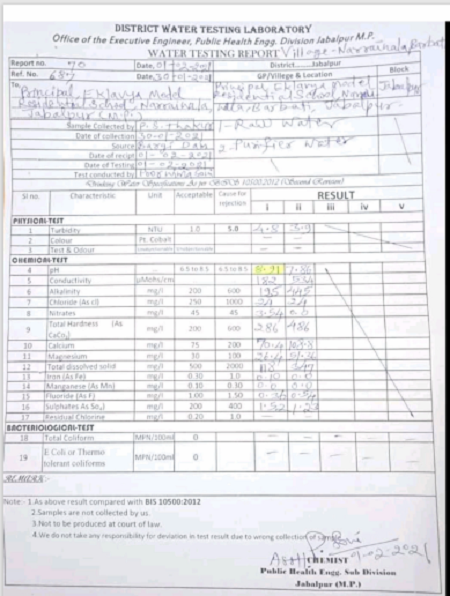 DISTRICT WATER TESTING LABORATORY
Office of the Executive Engineer, Public Health Engg. Division Jabalpur M.P.
WATER TESTING REPORT Village - Narrainala
Report no. 70 Date, 01-02-2021 District Jabalpur
Ref. No. 687 Date, 30-01-2021 GP/Village & Location Block
To,
Principal Jabalpur
Residential School, Narrainala,
Jabalpur (M.P.)
Sample Collected by P.S. Thakur 1- Raw Water
Date of collection 30-01-2021
Source Bargi Dam 2- Purifier Water
Date of recipt 01-02-2021
Date of Testing 01-02-2021
Test conducted by
Drinking Water Specification As per (BIS)IS 10500:2012 (Second Revision)
Sl no. Characteristic Unit Acceptable Cause for rejection RESULT
i ii iii iv v
PHYSICAL-TEST
1 Turbidity NTU 1.0 5.0 4.8 3.9
2 Colour Pt. Cobalt — —
3 Test & Odour — —
CHEMICAL-TEST
4 pH 6.5 to 8.5 6.5 to 8.5 8.21 7.86
5 Conductivity µMohs/cm 182 534
6 Alkalinity mg/l 200 600 195 445
7 Chloride (As cl) mg/l 250 1000 24 24
8 Nitrates mg/l 45 45 3.54 0.0
9 Total Hardness (As CaCo3) mg/l 200 600 286 486
10 Calcium mg/l 75 200
11 Magnesium mg/l 30 100
12 Total dissolved solid mg/l 500 2000 118 347
13 Iron (As Fe) mg/l 0.30 1.0 0.10 0.0
14 Manganese (As Mn) mg/l 0.10 0.30 0.0 0.0
15 Fluoride (As F) mg/l 1.00 1.50
16 Sulphates As So4) mg/l 200 400 1.52
17 Residual Chlorine mg/l 0.20 1.0 — —
BACTERIOLOGICAL-TEST
18 Total Coliform MPN/100ml 0 — — -
19 E Coli or Thermo tolerant coliforms MPN/100ml 0 — —
REMARK:-
Note:- 1.As above result compared with BIS 10500:2012
2.Samples are not collected by us.
3.Not to be produced at court of law.
4.We do not take any responsibility for deviation in test result due to wrong collection of sample.
Asstt CHEMIST 9-02-2021
Public Health Engg. Sub Division
Jabalpur (M.P.)